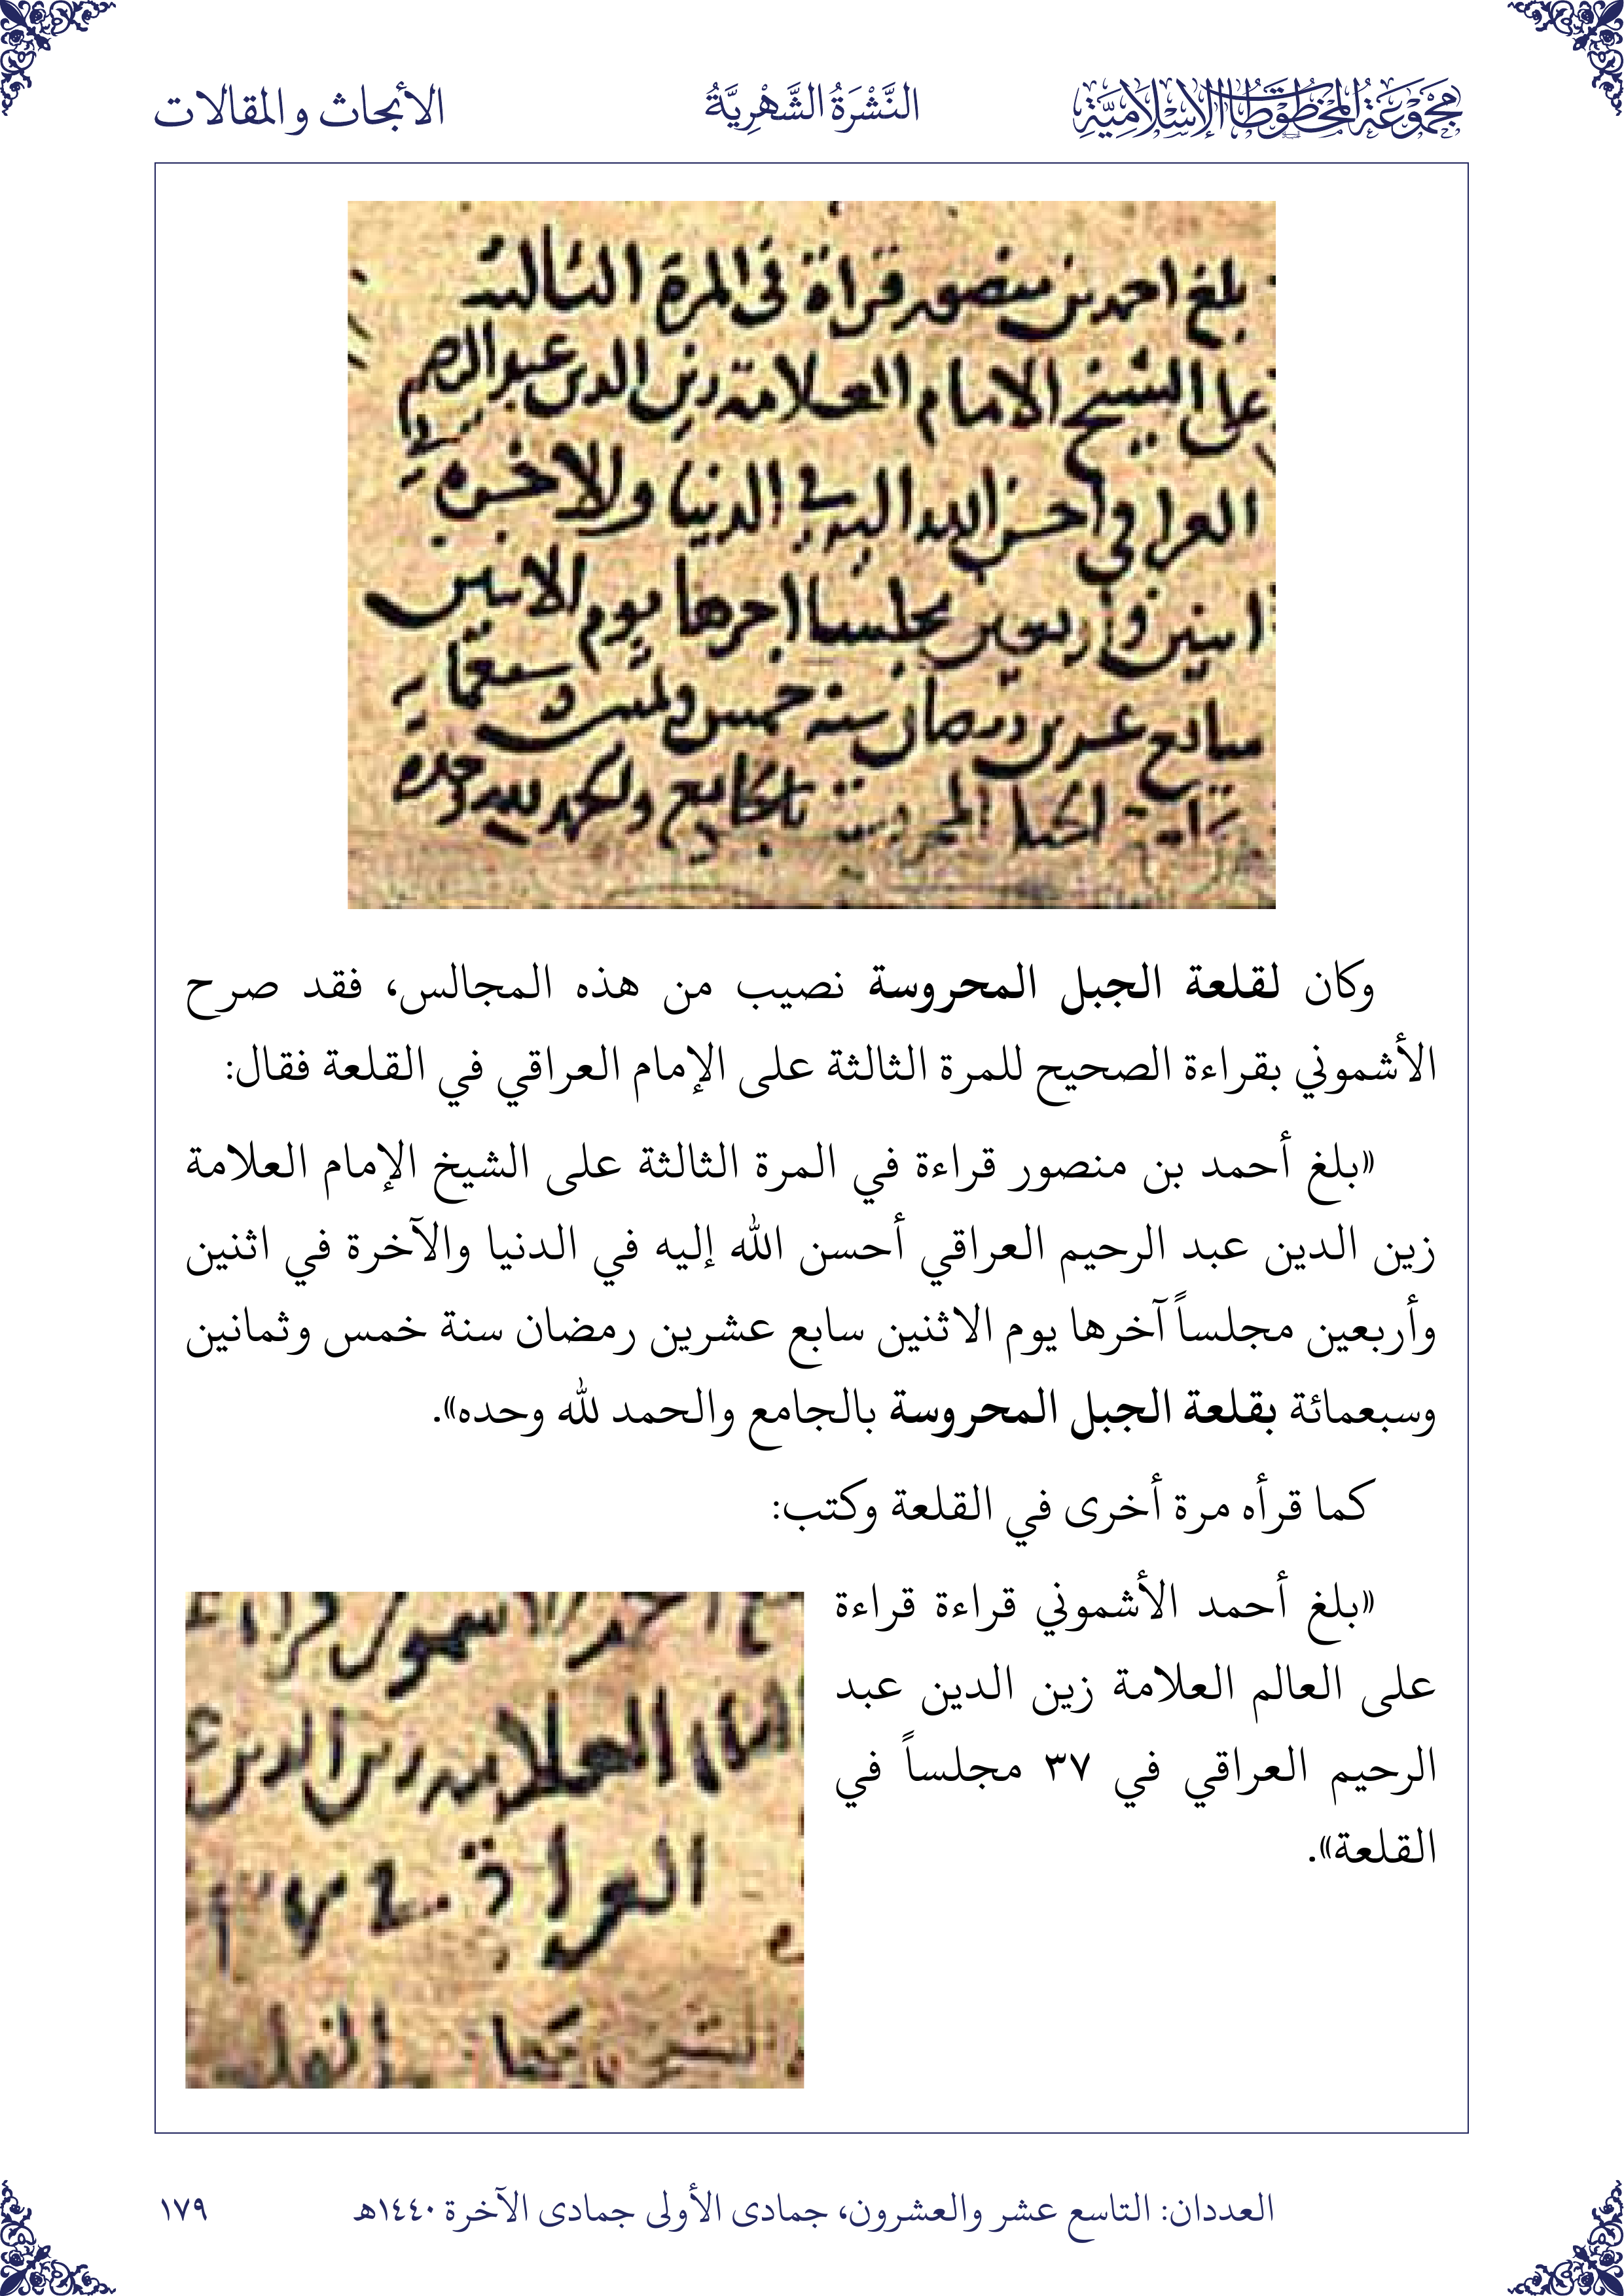 مَجْمُوعَةُ المَخْطُوطَاتِ الإِسْلَامِيَّةِ
النَّشْرَةُ الشَّهْرِيَّةُ
الأبحاث والمقالات
بلغ احمد بن منصور قراة في المرة الثالثة
على الشيخ الامام العلامة زين الدين عبد الرحيم
العراقي احسن الله اليه في الدنيا والاخرة في
اثنين واربعين مجلسا اخرها يوم الاثنين
سابع عشرين رمضان سنة خمس وثمنين وسبعماية
بقلعة الجبل المحروسة بالجامع والحمد لله وحده
وكان لقلعة الجبل المحروسة نصيب من هذه المجالس، فقد صرح
الأشموني بقراءة الصحيح للمرة الثالثة على الإمام العراقي في القلعة فقال:
«بلغ أحمد بن منصور قراءة في المرة الثالثة على الشيخ الإمام العلامة
زين الدين عبد الرحيم العراقي أحسن الله إليه في الدنيا والآخرة في اثنين
وأربعين مجلساً آخرها يوم الاثنين سابع عشرين رمضان سنة خمس وثمانين
وسبعمائة بقلعة الجبل المحروسة بالجامع والحمد لله وحده».
كما قرأه مرة أخرى في القلعة وكتب:
«بلغ أحمد الأشموني قراءة قراءة
على العالم العلامة زين الدين عبد
الرحيم العراقي في ٣٧ مجلساً في
القلعة».
احمد الاشموني قراءة
العلامة زين الدين
العراقي
العددان: التاسع عشر والعشرون، جمادى الأولى جمادى الآخرة ١٤٤٠هـ
١٧٩